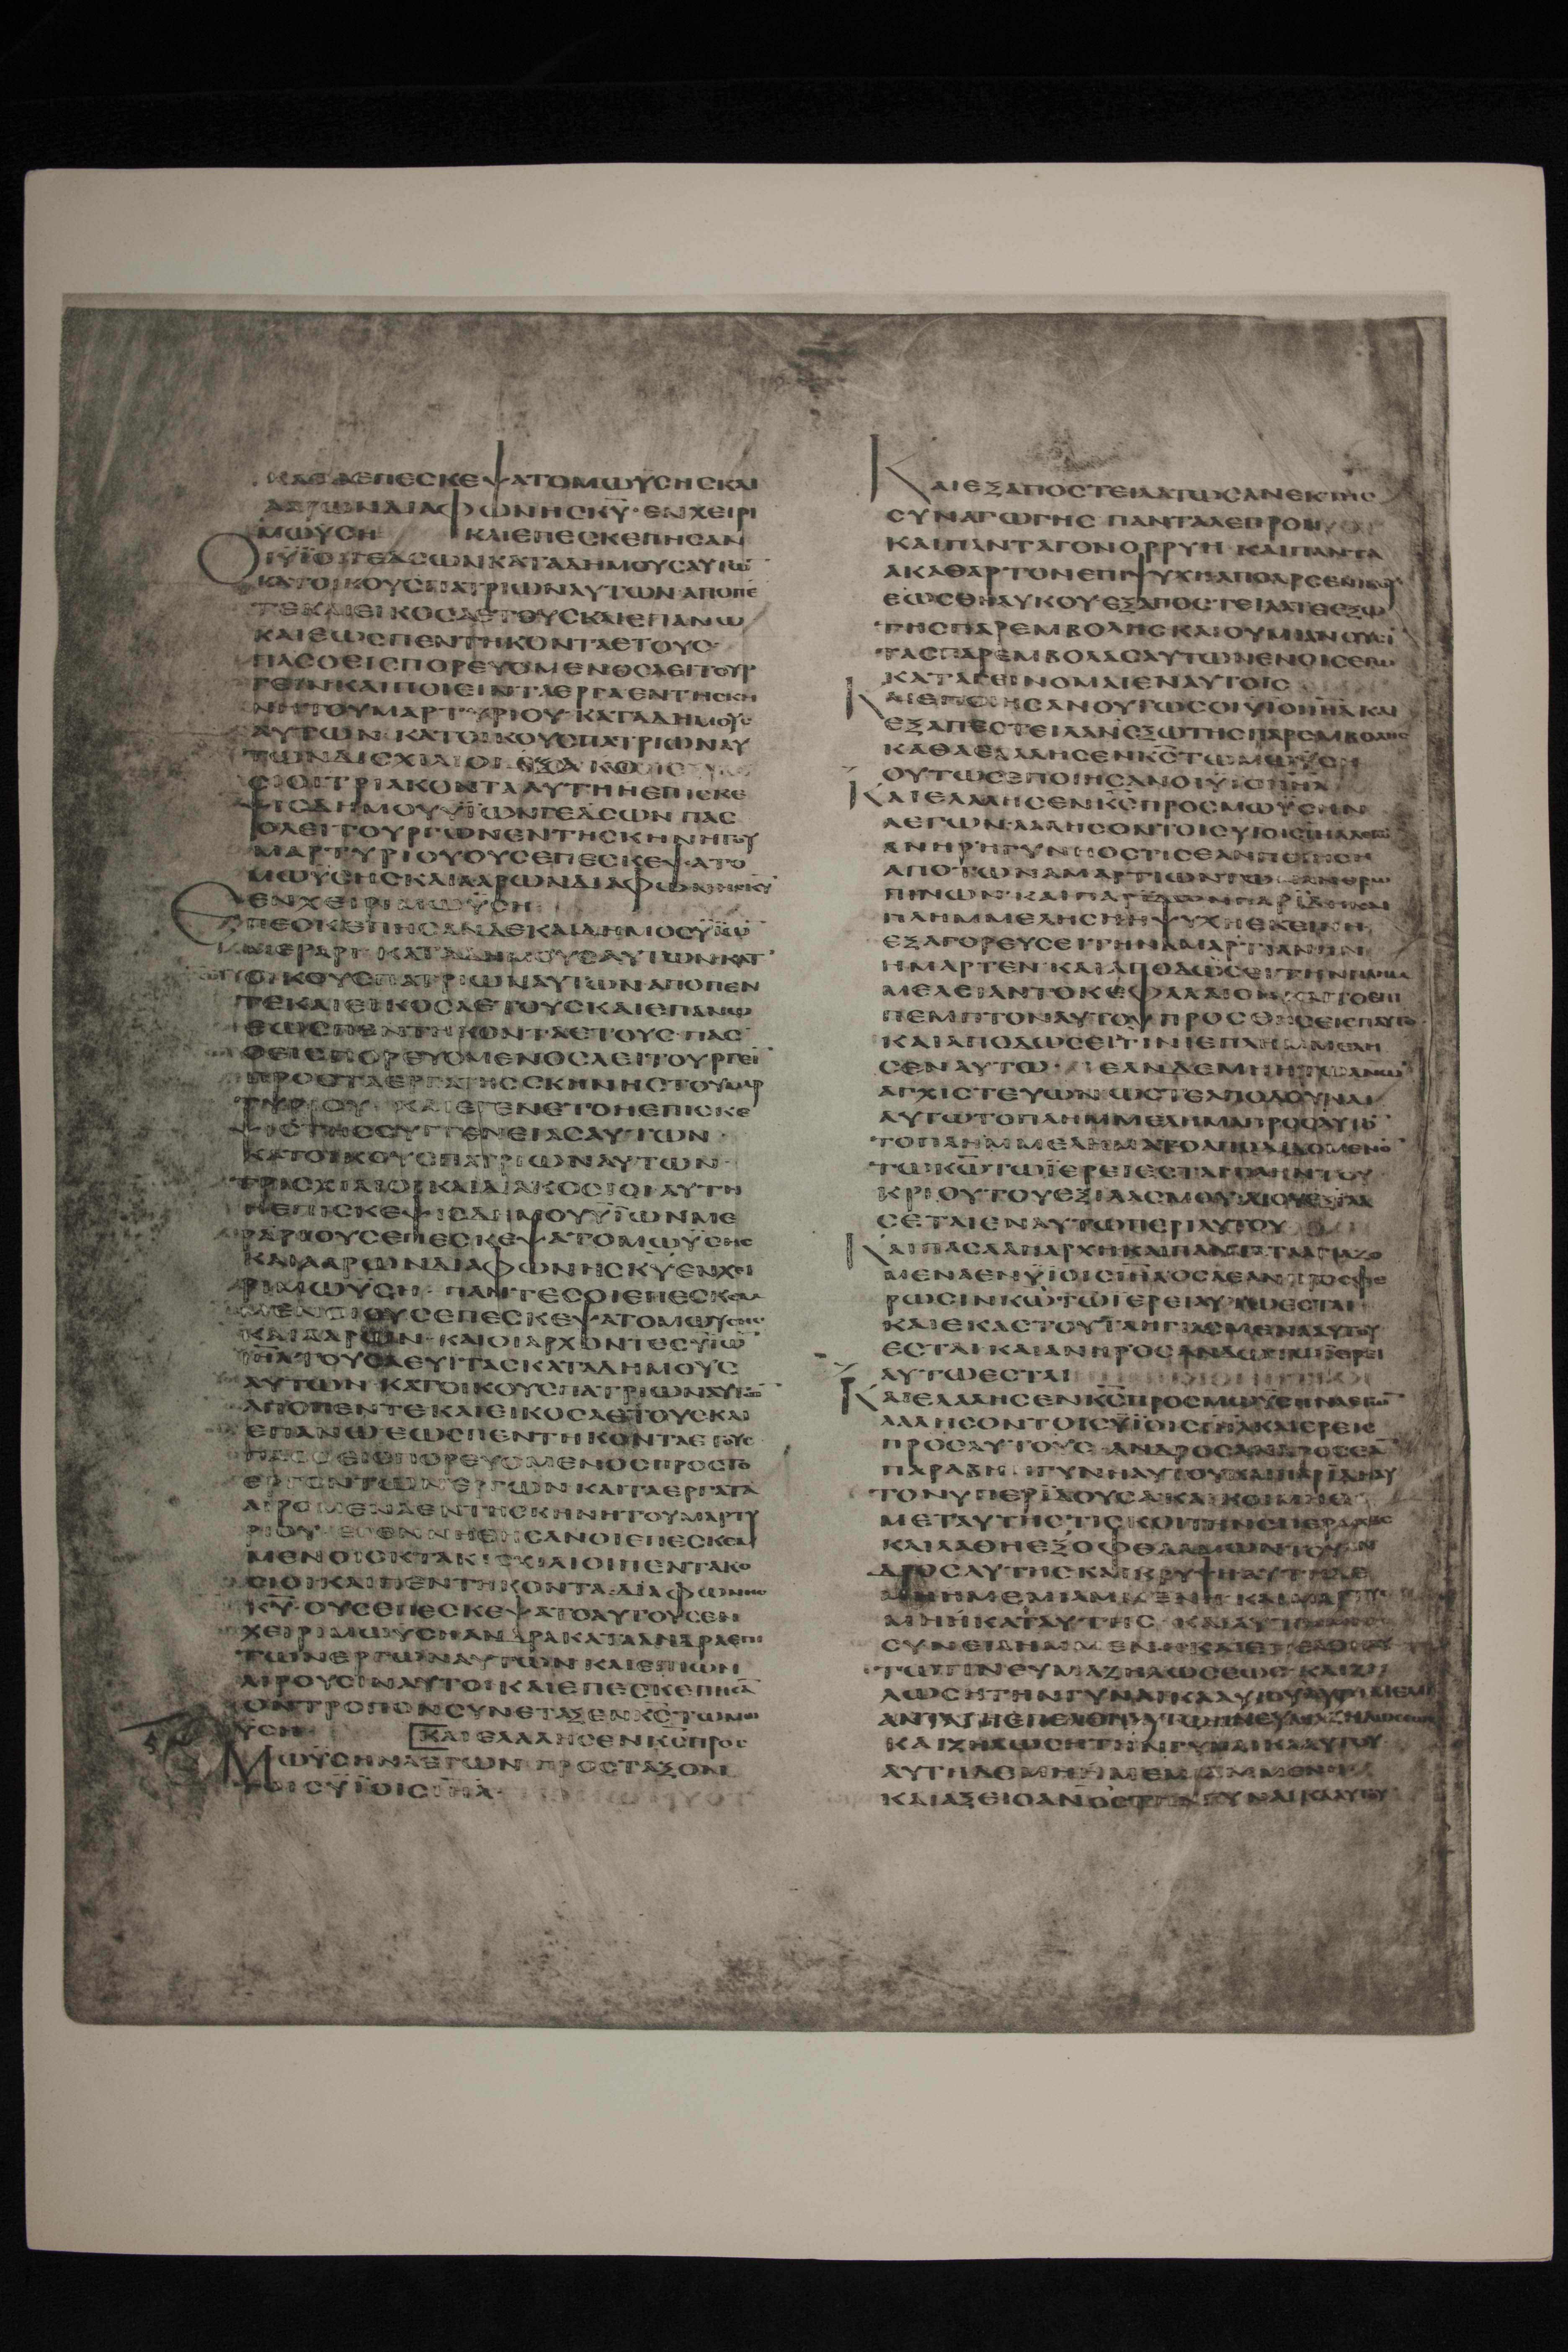 ΚΑΘΑΕΠΕΣΚΕΨΑΤΟΜΩΫΣΗΣΚΑΙ
ΑΑΡΩΝΔΙΑΦΩΝΗΣΚΥ·ΕΝΧΕΙΡΙ
ΜΩΫΣΗ ΚΑΙΕΠΕΣΚΕΠΗΣΑΝ
ΟΙΫΙΟΙΓΕΔΣΩΝΚΑΤΑΔΗΜΟΥΣΑΥΤΩ
ΚΑΤΟΙΚΟΥΣΠΑΤΡΙΩΝΑΥΤΩΝ·ΑΠΟΠΕ
ΤΕΚΑΙΕΙΚΟΣΑΕΤΟΥΣΚΑΙΕΠΑΝΩ
ΚΑΙΕΩΣΠΕΝΤΗΚΟΝΤΑΕΤΟΥΣ·
ΠΑΣΟΕΙΣΠΟΡΕΥΟΜΕΝΟΣΛΕΙΤΟΥΡ
ΓΕΙΝΚΑΙΠΟΙΕΙΝΤΑΕΡΓΑΕΝΤΗΣΚΗ
ΝΗΤΟΥΜΑΡΤΥΡΙΟΥ·ΚΑΤΑΔΗΜΟΥΣ
ΑΥΤΩΝ·ΚΑΤΟΙΚΟΥΣΠΑΤΡΙΩΝΑΥ
ΤΩΝΔΙΣΧΙΛΙΟΙ·ΕΞΑΚΟ
ΣΙΟΙΤΡΙΑΚΟΝΤΑΑΥΤΗΗΕΠΙΣΚΕ
ΨΙΣΔΗΜΟΥΫΙΩΝΓΕΔΣΩΝ ΠΑΣ
ΟΛΕΙΤΟΥΡΓΩΝΕΝΤΗΣΚΗΝΗΤΟΥ
ΜΑΡΤΥΡΙΟΥΟΥΣΕΠΕΣΚΕΨΑΤΟ
ΜΩΫΣΗΣΚΑΙΑΑΡΩΝΔΙΑΦΩΝΗΣΚΥ
ΕΝΧΕΙΡΙΜΩΫΣΗ
ΕΠΕΣΚΕΠΗΣΑΝΔΕΚΑΙΔΗΜΟΣΫΙΩ
ΜΕΡΑΡΙ·ΚΑΤΑΔΗΜΟΥΣΑΥΤΩΝΚΑΤ
ΟΙΚΟΥΣΠΑΤΡΙΩΝΑΥΤΩΝΑΠΟΠΕΝ
ΤΕΚΑΙΕΙΚΟΣΑΕΤΟΥΣΚΑΙΕΠΑΝΩ
ΕΩΣΠΕΝΤΗΚΟΝΤΑΕΤΟΥΣ·ΠΑΣ
ΟΕΙΣΠΟΡΕΥΟΜΕΝΟΣΛΕΙΤΟΥΡΓΕΙ
ΠΡΟΣΤΑΕΡΓΑΤΗΣΣΚΗΝΗΣΤΟΥΜΑΡ
ΤΥΡΙΟΥ· ΚΑΙΕΓΕΝΕΤΟΗΕΠΙΣΚΕ
ΨΙΣΤΗΣΣΥΓΓΕΝΕΙΑΣΑΥΤΩΝ·
ΚΑΤΟΙΚΟΥΣΠΑΤΡΙΩΝΑΥΤΩΝ·
ΤΡΙΣΧΙΛΙΟΙΚΑΙΔΙΑΚΟΣΙΟΙ·ΑΥΤΗ
ΗΕΠΙΣΚΕΨΙΣΔΗΜΟΥΫΙΩΝΜΕ
ΡΑΡΙΟΥΣΕΠΕΣΚΕΨΑΤΟΜΩΫΣΗΣ
ΚΑΙΑΑΡΩΝΔΙΑΦΩΝΗΣΚΥΕΝΧΕΙ
ΡΙΜΩΫΣΗ· ΠΑΝΤΕΣΟΙΕΠΕΣΚΕΜ
ΜΕΝΟΙΟΥΣΕΠΕΣΚΕΨΑΤΟΜΩΫΣΗΣ
ΚΑΙΑΑΡΩΝ·ΚΑΙΟΙΑΡΧΟΝΤΕΣΫΙΩ
ΙΗΛΤΟΥΣΛΕΥΙΤΑΣΚΑΤΑΔΗΜΟΥΣ
ΑΥΤΩΝ·ΚΑΤΟΙΚΟΥΣΠΑΤΡΙΩΝΑΥΤΩ
ΑΠΟΠΕΝΤΕΚΑΙΕΙΚΟΣΑΕΤΟΥΣΚΑΙ
ΕΠΑΝΩΕΩΣΠΕΝΤΗΚΟΝΤΑΕΤΟΥΣ·
ΠΑΣΟΕΙΣΠΟΡΕΥΟΜΕΝΟΣΠΡΟΣΤΟ
ΕΡΓΟΝΤΩΝΕΡΓΩΝΚΑΙΤΑΕΡΓΑΤΑ
ΑΙΡΟΜΕΝΑΕΝΤΗΣΚΗΝΗΤΟΥΜΑΡΤΥ
ΡΙΟΥ·ΕΓΕΝΝΗΘΗΣΑΝΟΙΕΠΕΣΚΕΜ
ΜΕΝΟΙΟΚΤΑΚΙΣΧΙΛΙΟΙΠΕΝΤΑΚΟ
ΣΙΟΙΚΑΙΠΕΝΤΗΚΟΝΤΑ·ΔΙΑΦΩΝΗΣ
ΚΥ·ΟΥΣΕΠΕΣΚΕΨΑΤΟΑΥΤΟΥΣΕΝ
ΧΕΙΡΙΜΩΥΣΗΑΝΔΡΑΚΑΤΑΑΝΔΡΑΕΠΙ
ΤΩΝΕΡΓΩΝΑΥΤΩΝΚΑΙΕΠΙΩΝ
ΑΙΡΟΥΣΙΝΑΥΤΟΙΚΑΙΕΠΕΣΚΕΠΗΣΑ
ΟΝΤΡΟΠΟΝΣΥΝΕΤΑΞΕΝΚΣΤΩΜΩ
ΫΣΗ· ΚΑΙΕΛΑΛΗΣΕΝΚΣΠΡΟΣ
ΜΩΫΣΗΝΛΕΓΩΝ·ΠΡΟΣΤΑΞΟΝ
ΤΟΙΣΫΙΟΙΣΙΗΛ·
ΚΑΙΕΞΑΠΟΣΤΕΙΛΑΤΩΣΑΝΕΚΤΗΣ
ΣΥΝΑΓΩΓΗΣ ΠΑΝΤΑΛΕΠΡΟΝ
ΚΑΙΠΑΝΤΑΓΟΝΟΡΡΥΗ·ΚΑΙΠΑΝΤΑ
ΑΚΑΘΑΡΤΟΝΕΠΙΨΥΧΗΑΠΟΑΡΣΕΝΙΚΟΥ
ΕΩΣΘΗΛΥΚΟΥΕΞΑΠΟΣΤΕΙΛΑΤΕΕΞΩ
ΤΗΣΠΑΡΕΜΒΟΛΗΣΚΑΙΟΥΜΙΑΝΟΥΣΙ
ΤΑΣΠΑΡΕΜΒΟΛΑΣΑΥΤΩΝΕΝΟΙΣΕΓΩ
ΚΑΤΑΓΕΙΝΟΜΑΙΕΝΑΥΤΟΙΣ
ΚΑΙΕΠΟΙΗΣΑΝΟΥΤΩΣΟΙΫΙΟΙΙΗΛΚΑΙ
ΕΞΑΠΕΣΤΕΙΛΑΝΕΞΩΤΗΣΠΑΡΕΜΒΟΛΗΣ
ΚΑΘΑΕΛΑΛΗΣΕΝΚΣΤΩΜΩΫΣΗ
ΟΥΤΩΣΕΠΟΙΗΣΑΝΟΙΫΙΟΙΙΗΛ
ΚΑΙΕΛΑΛΗΣΕΝΚΣΠΡΟΣΜΩΫΣΗΝ
ΛΕΓΩΝ·ΛΑΛΗΣΟΝΤΟΙΣΥΙΟΙΣΙΗΛ
ΑΝΗΡΗΓΥΝΗΟΣΤΙΣΕΑΝΠΟΙΗΣΗ
ΑΠΟΤΩΝΑΜΑΡΤΙΩΝΤΩΝΑΝΘΡΩ
ΠΙΝΩΝ·ΚΑΙΠΑΡΙΔΩΝΠΑΡΙΔΗΚΑΙ
ΠΛΗΜΜΕΛΗΣΗΗΨΥΧΗΕΚΕΙΝΗ
ΕΞΑΓΟΡΕΥΣΕΙΤΗΝΑΜΑΡΤΙΑΝΗΝ
ΗΜΑΡΤΕΝ·ΚΑΙΑΠΟΔΩΣΕΙΤΗΝΠΛΗΜ
ΜΕΛΕΙΑΝΤΟΚΕΦΑΛΑΙΟΝΚΑΙΤΟΕΠΙ
ΠΕΜΠΤΟΝΑΥΤΟΥΠΡΟΣΘΗΣΕΙΕΠΑΥΤΟ
ΚΑΙΑΠΟΔΩΣΕΙΤΙΝΙΕΠΛΗΜΜΕΛΗ
ΣΕΝΑΥΤΩ· ΕΑΝΔΕΜΗΗΤΩΑΝΩ
ΑΓΧΙΣΤΕΥΩΝΩΣΤΕΑΠΟΔΟΥΝΑΙ
ΑΥΤΩΤΟΠΛΗΜΜΕΛΗΜΑΠΡΟΣΑΥΤΟ
ΤΟΠΛΗΜΜΕΛΗΜΑΤΟΑΠΟΔΙΔΟΜΕΝΟ
ΤΩΚΩΤΩΪΕΡΕΙΕΣΤΑΙΠΛΗΝΤΟΥ
ΚΡΙΟΥΤΟΥΕΞΙΛΑΣΜΟΥΔΙΟΥΕΞΙΛΑ
ΣΕΤΑΙΕΝΑΥΤΩΠΕΡΙΑΥΤΟΥ
ΚΑΙΠΑΣΑΑΠΑΡΧΗΚΑΙΠΑΝΤΑΤΑΑΓΙΑΖΟ
ΜΕΝΑΕΝΫΙΟΙΣΙΗΛΟΣΑΕΑΝΠΡΟΣΦΕ
ΡΩΣΙΝΚΩΤΩΪΕΡΕΙΑΥΤΩΕΣΤΑΙ
ΚΑΙΕΚΑΣΤΟΥΤΑΗΓΙΑΣΜΕΝΑΑΥΤΟΥ
ΕΣΤΑΙΚΑΙΑΝΗΡΟΣΑΝΔΩΤΩΪΕΡΕΙ
ΑΥΤΩΕΣΤΑΙ
ΚΑΙΕΛΑΛΗΣΕΝΚΣΠΡΟΣΜΩΫΣΗΝΛΕΓΩ
ΛΑΛΗΣΟΝΤΟΙΣΫΙΟΙΣΙΗΛΚΑΙΕΡΕΙΣ
ΠΡΟΣΑΥΤΟΥΣ·ΑΝΔΡΟΣΑΝΔΡΟΣΕΑ
ΠΑΡΑΒΗ ΗΓΥΝΗΑΥΤΟΥΚΑΙΠΑΡΙΔΗΑΥ
ΤΟΝΥΠΕΡΙΔΟΥΣΑΚΑΙΚΟΙΜΗΘΗ
ΜΕΤΑΥΤΗΣΤΙΣΚΟΙΤΗΝΣΠΕΡΜΑΤΟΣ
ΚΑΙΛΑΘΗΕΞΟΦΘΑΛΜΩΝΤΟΥΑΝ
ΔΡΟΣΑΥΤΗΣΚΑΙΚΡΥΨΗΑΥΤΗΔΕ
ΜΗΝ·ΚΑΤΑΥΤΗΣ· ΚΑΙΑΥΤΗ
ΣΥΝΕΙΛΗΜΜΕΝΗΚΑΙΕΠΕΛΘΗ
ΑΥΤΩΠΝΕΥΜΑΖΗΛΩΣΕΩΣ·ΚΑΙΖΗ
ΛΩΣΗΤΗΝΓΥΝΑΙΚΑΑΥΤΟΥ
ΚΑΙΖΗΛΩΣΗΤΗΝΓΥΝΑΙΚΑΑΥΤΟΥ
ΑΥΤΗΔΕΜΗΗΜΕΜΙΑΜΜΕΝΗ
ΚΑΙΑΞΕΙΟΑΝΟΣΤΗΝΓΥΝΑΙΚΑΑΥΤΟΥ